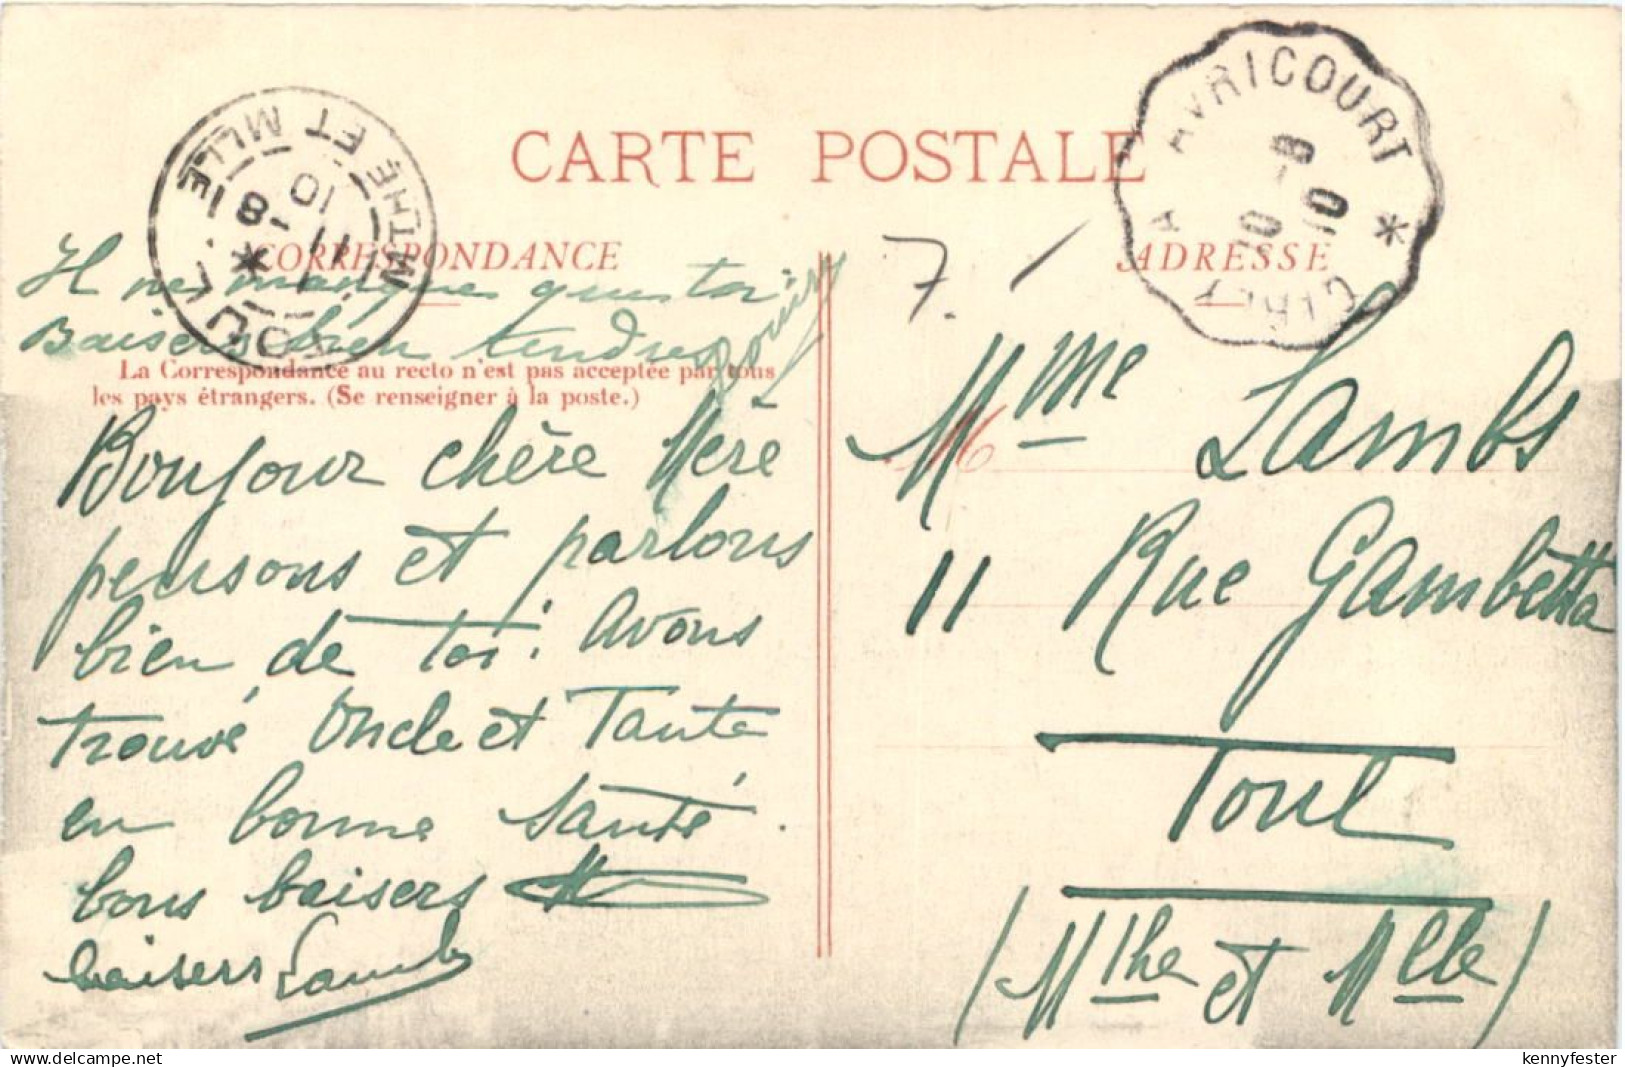 CARTE POSTALE
CORRESPONDANCE
Il ne manque que toi
Baisers bien tendres
La Correspondance au recto n'est pas acceptée par tous
les pays étrangers. (Se renseigner à la poste.)
Bonjour chère Mère
pensons et parlons
bien de toi. Avons
trouvé Oncle et Tante
en bonne santé.
bons baisers
baisers Lambs
TOUL
MTHE ET MLLE
11 - 8
10
ADRESSE
CIREY A AVRICOURT
10 - 8
10
7.
Mme Lambs
11 Rue Gambetta
Toul
(Mthe et Mlle)
kennyfester